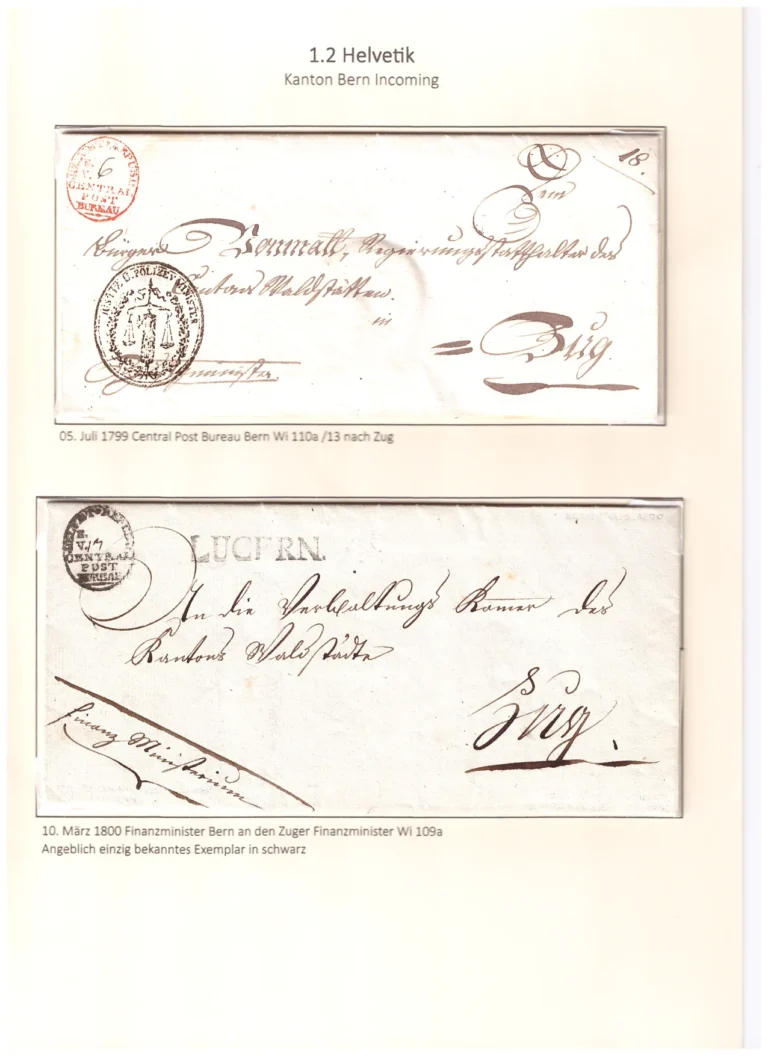 1.2 Helvetik
Kanton Bern Incoming
E.
V. 6
CENTRAL
POST
BUREAU
18.
Dem
Bürger Vonmatt, Regierungsstatthalter des
Cantons Waldstätten.
in
= Zug.
JUSTIZ U. POLIZEY MINISTER
05. Juli 1799 Central Post Bureau Bern Wi 110a /13 nach Zug
E.
V. 17
CENTRAL
POST
BUREAU
LUCERN.
An die Verwaltungs Kamer des
Kantons Waldstädte
Zug.
Finanz Ministerium
10. März 1800 Finanzminister Bern an den Zuger Finanzminister Wi 109a
Angeblich einzig bekanntes Exemplar in schwarz